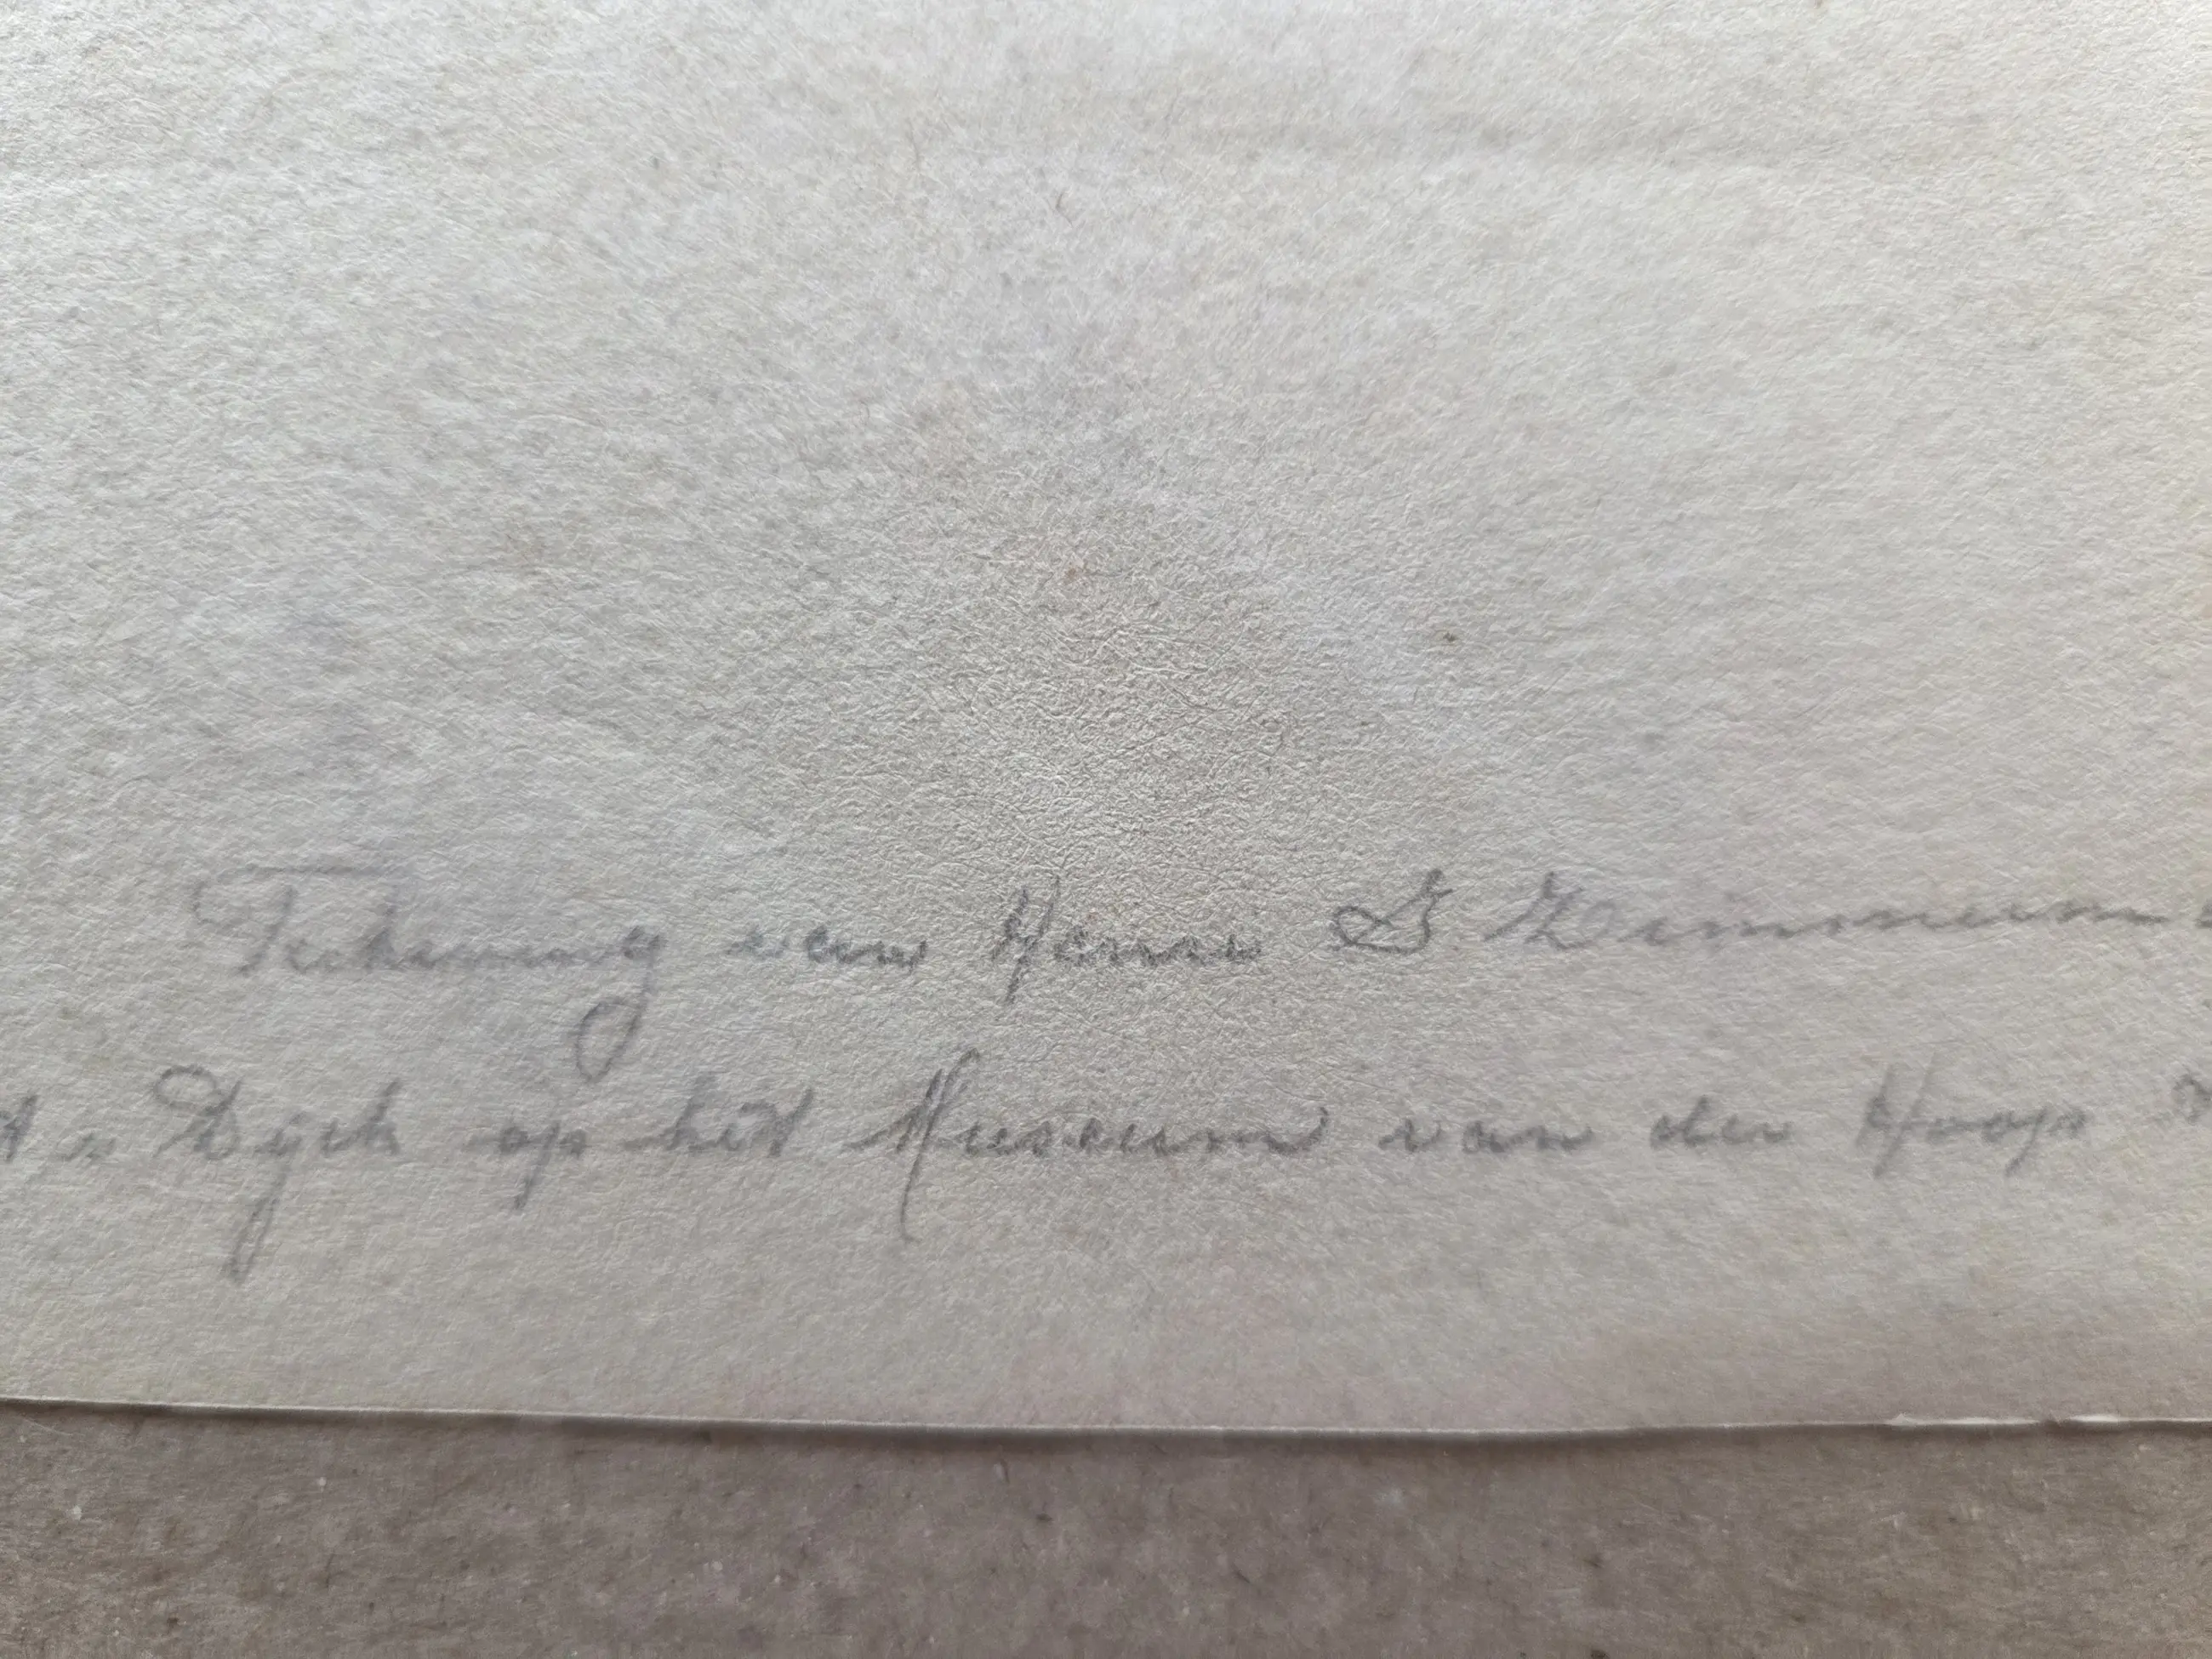 Teekening van Henri D Zimmerm
Dyck op het Museum van der Hoop